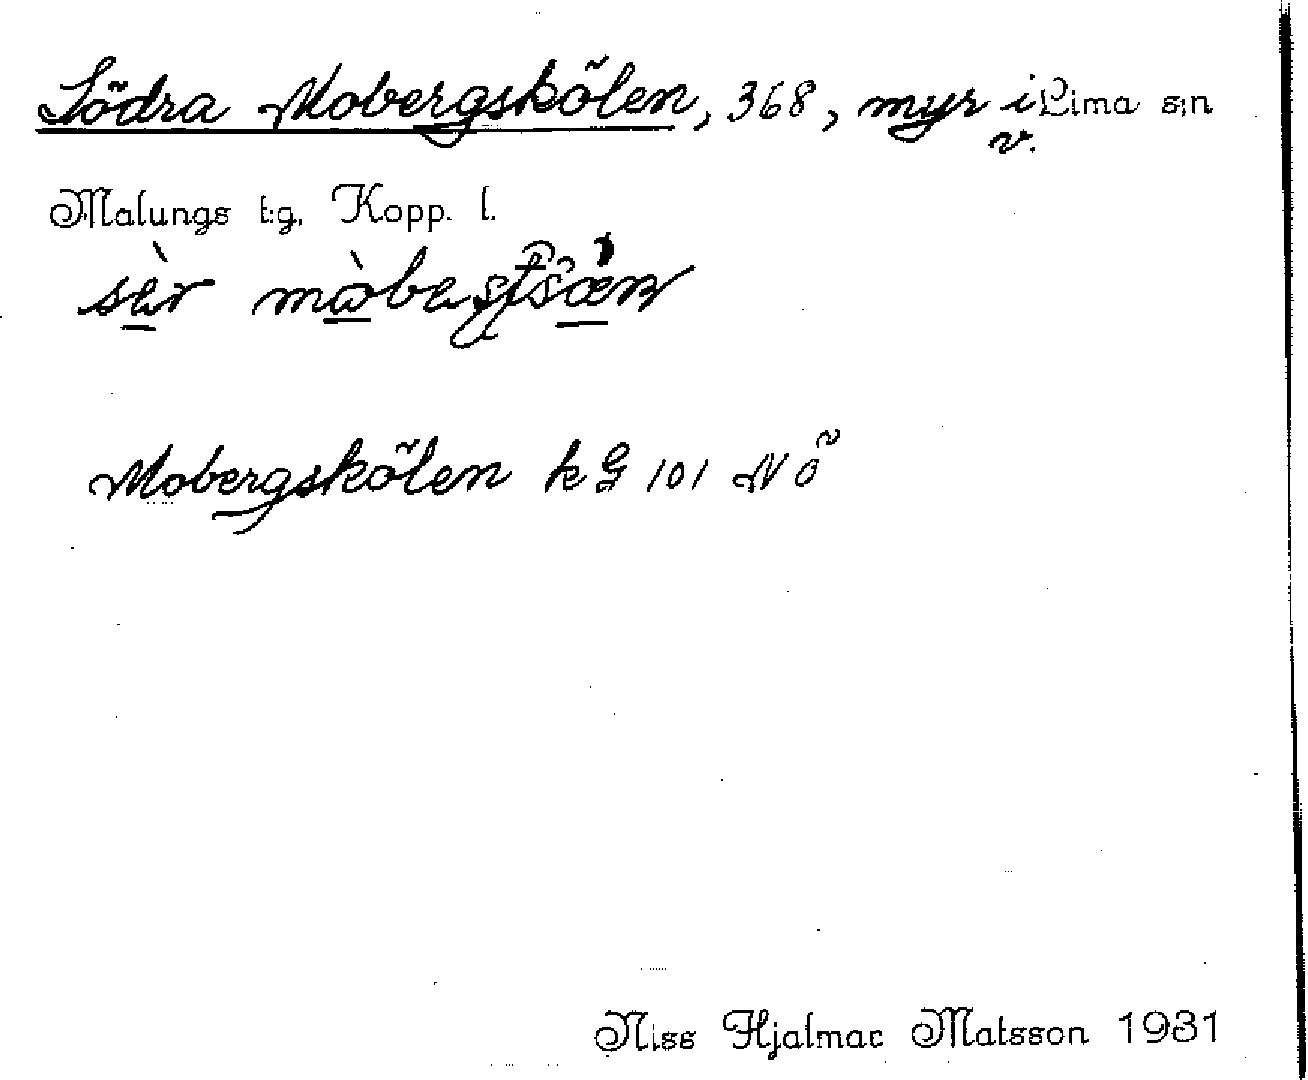 Södra Mobergskölen, 368, myr i v. Lima s:n
Malungs t:g. Kopp. l.
Mobergskölen k G 101 N ö
Niss Hjalmar Matsson 1931